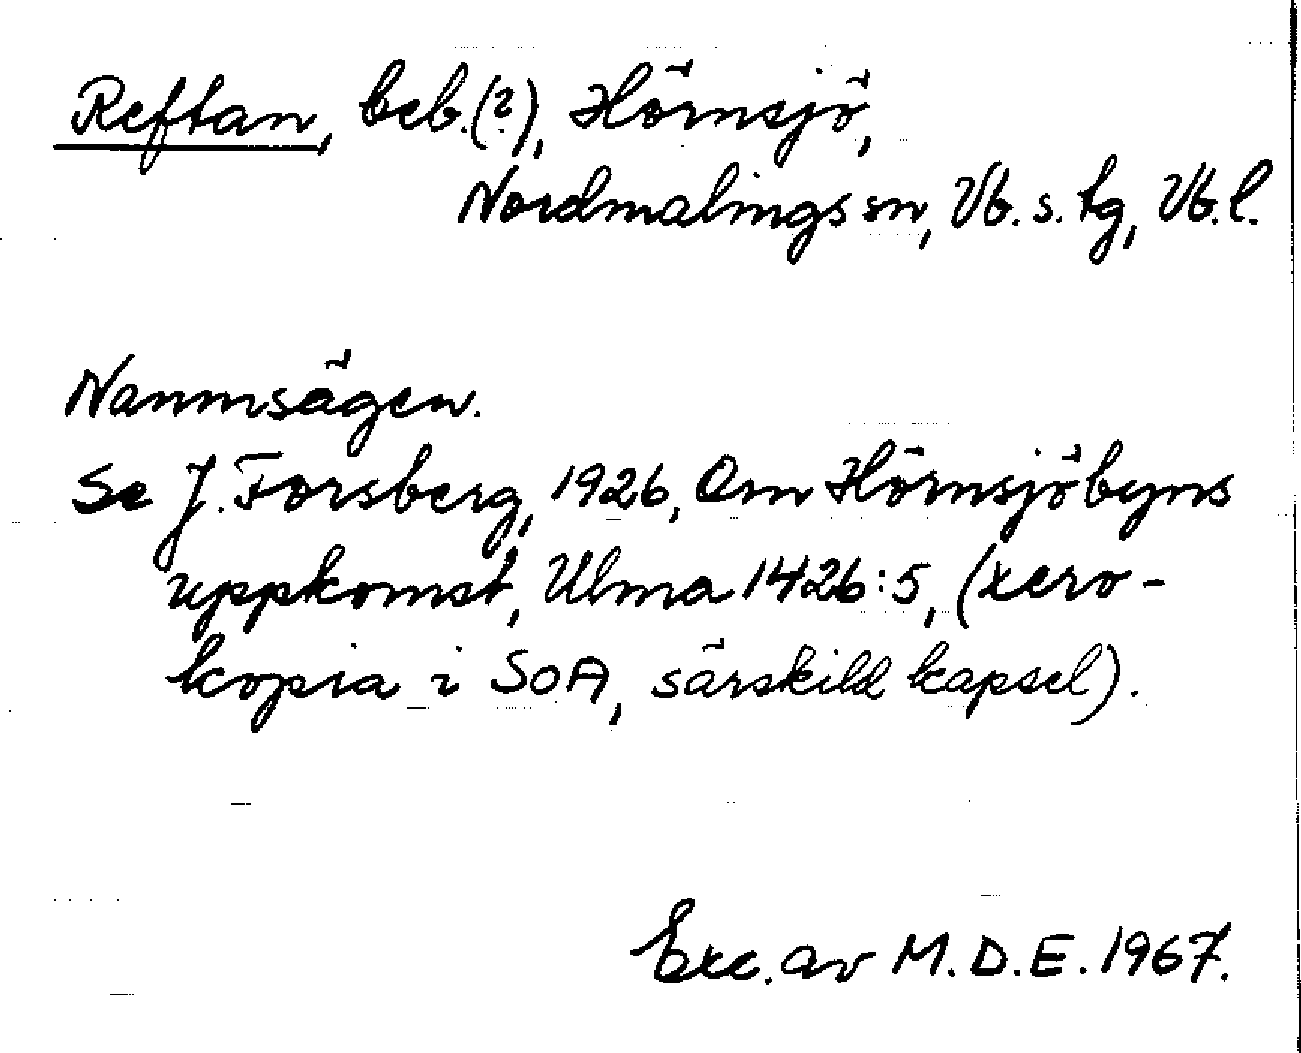 Reftan, beb.(?), Hörnsjö,
Nordmalings sn, Vb. s. tg, Vb. l.
Namnsägen.
Se J. Forsberg, 1926, Om Hörnsjöbyns
uppkomst, Ulma 1426:5, (xero-
kopia i SOA, särskild kapsel).
Exc. av M.D.E. 1967.